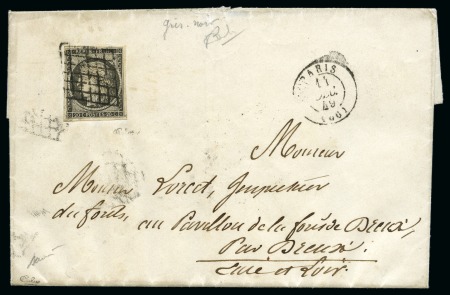 gris-noir
REPUB. FRANC.
20 C POSTES 20 C
PARIS
11
DEC.
49
(60)
Monsieur
Monsieur Lorcet, Inspecteur
des forêts, au Pavillon de la forêt de Dreux,
Par Dreux.
Eure et Loir.